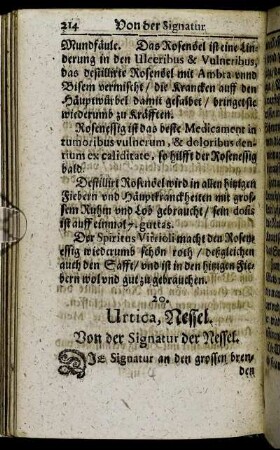 214 Von der Signatur
Mundfäule. Das Rosenöel ist eine Lin-
derung in den Ulceribus & Vulneribus,
das destillirte Rosenöel mit Ambra vnnd
Bisem vermischt / die Krancken auff den
Häuptwürbel damit gesalbet / bringet sie
wiederumb zu Kräfften.
Rosenessig ist das beste Medicament in
tumoribus vulnerum, & doloribus den-
tium ex caliditate, so hilfft der Rosenessig
bald.
Destillirt Rosenöel wird in allen hitzigen
Fiebern vnd Häuptkranckheiten mit gros-
sem Ruhm vnd Lob gebraucht / sein dosis
ist auff einmal 7. guttas.
Der Spiritus Vitrioli macht den Rosen-
essig wiederumb schön roth / deßgleichen
auch den Safft / vnd ist in den hitzigen Fie-
bern wol vnd gut zu gebrauchen.
20.
Urtica, Nessel.
Von der Signatur der Nessel.
DJe Signatur an den grossen bren-
den